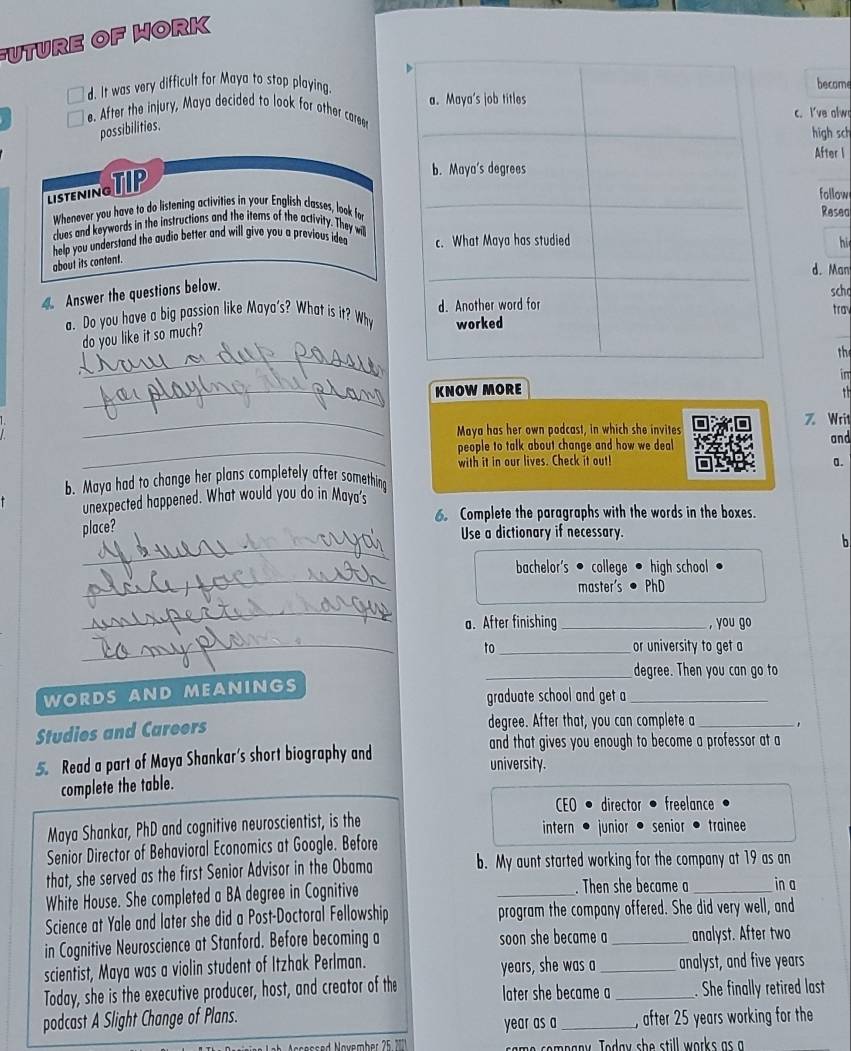 FUTURE OF WORK
d. It was very difficult for Maya to stop playing.
e. After the injury, Maya decided to look for other career
possibilities.
LISTENING TIP
Whenever you have to do listening activities in your English classes, look for
clues and keywords in the instructions and the items of the activity. They will
help you understand the audio better and will give you a previous idea
about its content.
4. Answer the questions below.
a. Do you have a big passion like Maya's? What is it? Why
do you like it so much?
I have a dep passion
for playing the piano
b. Maya had to change her plans completely after something
unexpected happened. What would you do in Maya's
place?
If I were in maya's
place, face with
unexpected
to my plan.
WORDS AND MEANINGS
Studies and Careers
5. Read a part of Maya Shankar's short biography and
complete the table.
Maya Shankar, PhD and cognitive neuroscientist, is the
Senior Director of Behavioral Economics at Google. Before
that, she served as the first Senior Advisor in the Obama
White House. She completed a BA degree in Cognitive
Science at Yale and later she did a Post-Doctoral Fellowship
in Cognitive Neuroscience at Stanford. Before becoming a
scientist, Maya was a violin student of Itzhak Perlman.
Today, she is the executive producer, host, and creator of the
podcast A Slight Change of Plans.
Accessed November 25, 2021
a. Maya's job titles
b. Maya's degrees
c. What Maya has studied
d. Another word for
worked
KNOW MORE
Maya has her own podcast, in which she invites
people to talk about change and how we deal
with it in our lives. Check it out!
6. Complete the paragraphs with the words in the boxes.
Use a dictionary if necessary.
bachelor's • college • high school •
master's • PhD
a. After finishing ____, you go
to ____ or university to get a
____ degree. Then you can go to
graduate school and get a ____
degree. After that, you can complete a ____,
and that gives you enough to become a professor at a
university.
CEO • director • freelance •
intern • junior • senior • trainee
b. My aunt started working for the company at 19 as an
____. Then she became a ____ in a
program the company offered. She did very well, and
soon she became a ____ analyst. After two
years, she was a ____ analyst, and five years
later she became a ____. She finally retired last
year as a ____, after 25 years working for the
same company. Today she still works as a
become
c. I've alw
high sch
After I
follow
Resea
hi
d. Man
scho
trav
the
im
th
7. Writ
and
a.
b